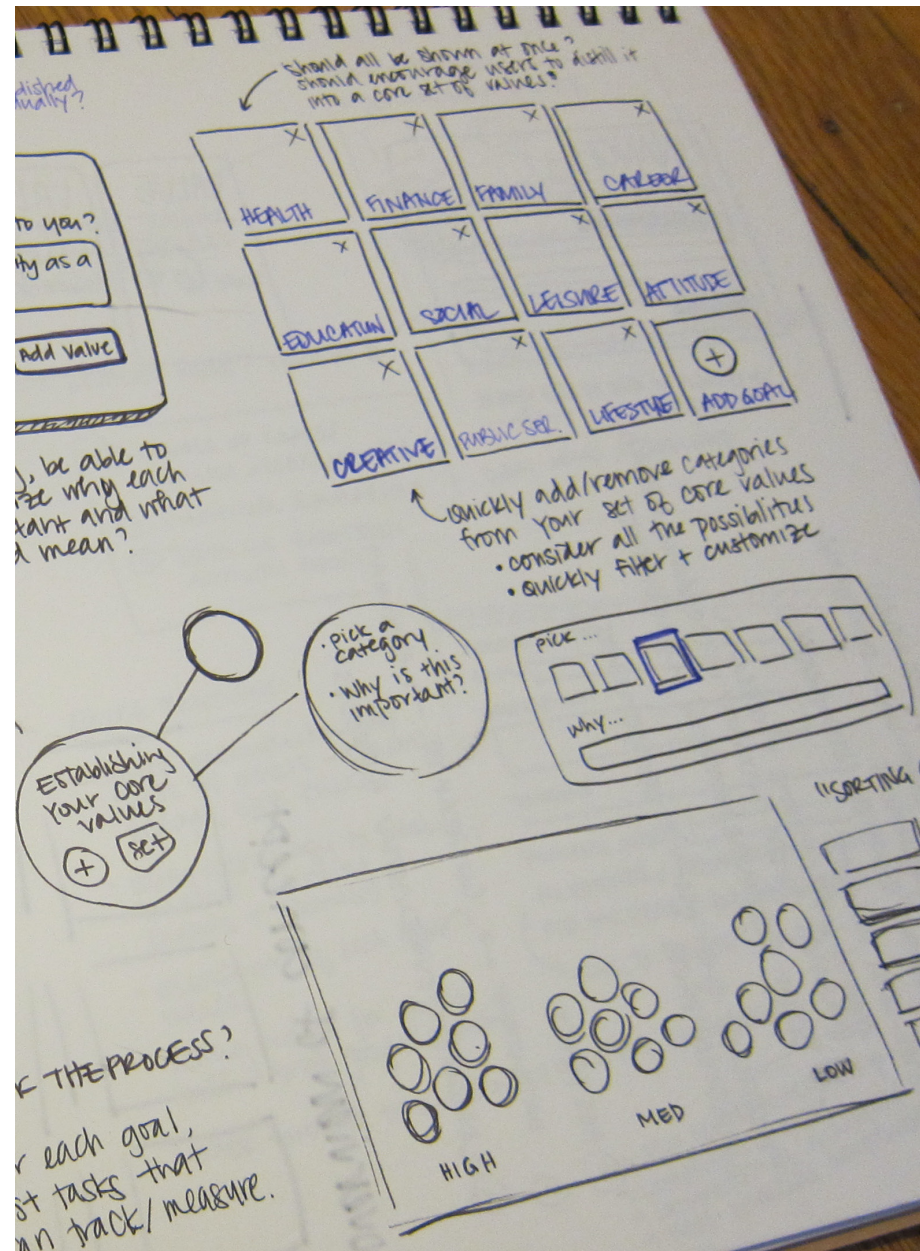 should all be shown at once?
should encourage users to distill it
into a core set of values?
HEALTH
FINANCE
FAMILY
CAREER
EDUCATION
SOCIAL
LEISURE
ATTITUDE
CREATIVE
PUBLIC SER.
LIFESTYLE
+
ADD GOAL
to you?
as a
Add value
, be able to
why each
and what
mean?
Quickly add/remove categories
from your set of core values
• consider all the possiblities
• quickly filter + customize
• Pick a
category
• Why is this
important?
pick...
why...
Establishing
your core
values
+
set
"SORTING
THE PROCESS?
each goal,
tasks that
track/measure.
HIGH
MED
LOW